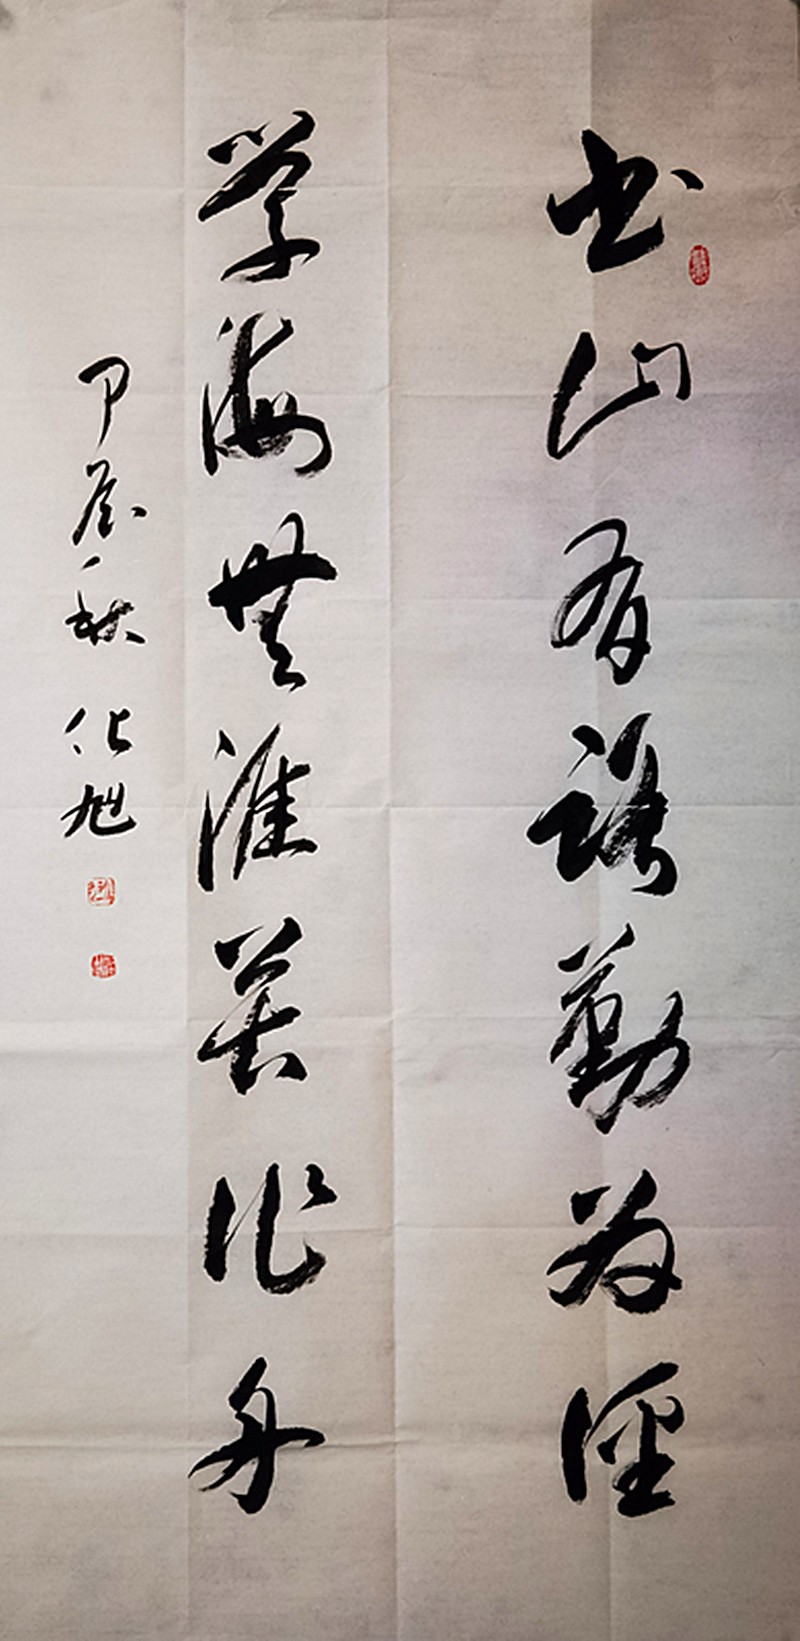 书山有路勤为径
学海无涯苦作舟
甲辰秋 化旭